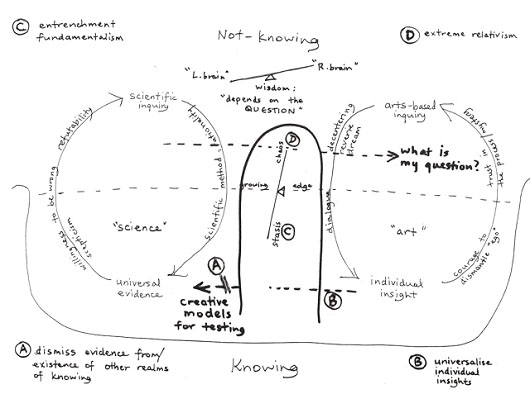 C entrenchment
fundamentalism
Not-Knowing
D extreme relativism
"L.brain" "R.brain"
wisdom;
"depends on the
QUESTION"
scientific
inquiry
arts-based
inquiry
refutability
willingness to be wrong
scepticism
scientific method
rationality
decentering
reverie
dream
dialogue
trust in process/mystery
courage to
dismantle "ego"
D
chaos
what is
my question?
growing edge
stasis
C
"science"
"art"
universal
evidence
individual
insight
A
B
creative
models
for testing
A dismiss evidence from/
existence of other realms
of knowing
Knowing
B universalise
individual
insights